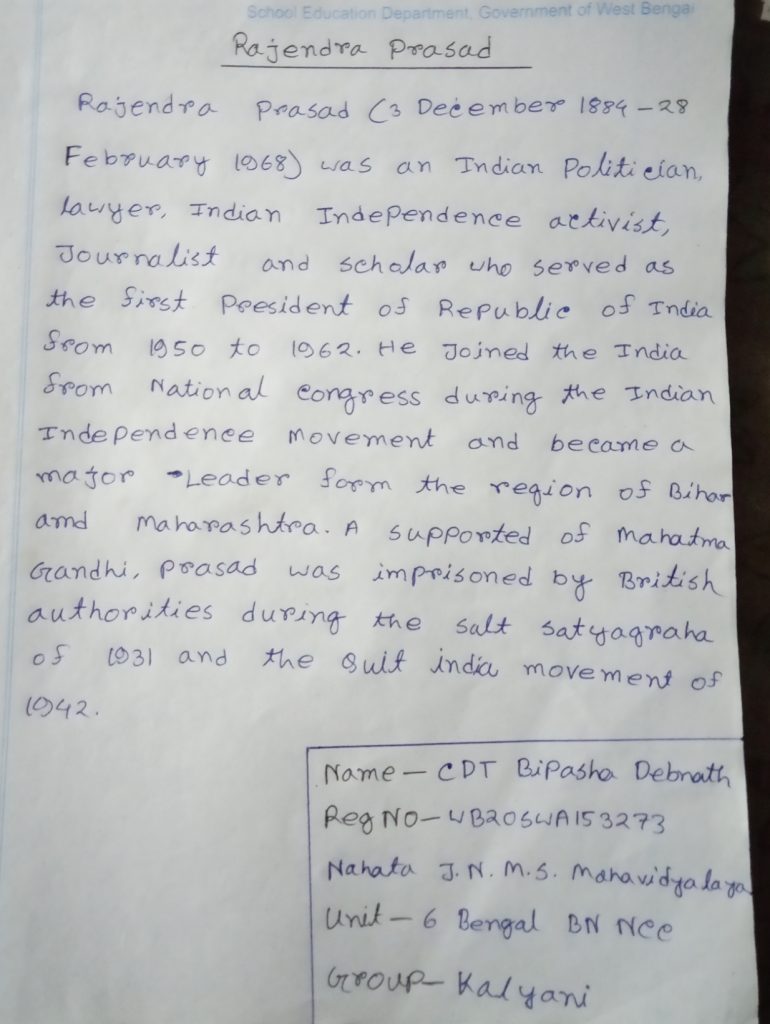 School Education Department, Government of West Bengal
Rajendra Prasad
Rajendra Prasad (3 December 1884 – 28
February 1968) was an Indian Politician,
lawyer, Indian Independence activist,
Journalist and scholar who served as
the first President of Republic of India
from 1950 to 1962. He Joined the India
from National congress during the Indian
Independence movement and became a
major Leader form the region of Bihar
amd maharashtra. A supported of mahatma
Gandhi, prasad was imprisoned by British
authorities during the salt satyagraha
of 1931 and the quit india movement of
1942.
Name – CDT Bipasha Debnath
Reg NO – WB20SWA153273
Nahata J.N.M.S. Mahavidyalaya
Unit – 6 Bengal BN NCC
Group – Kalyani